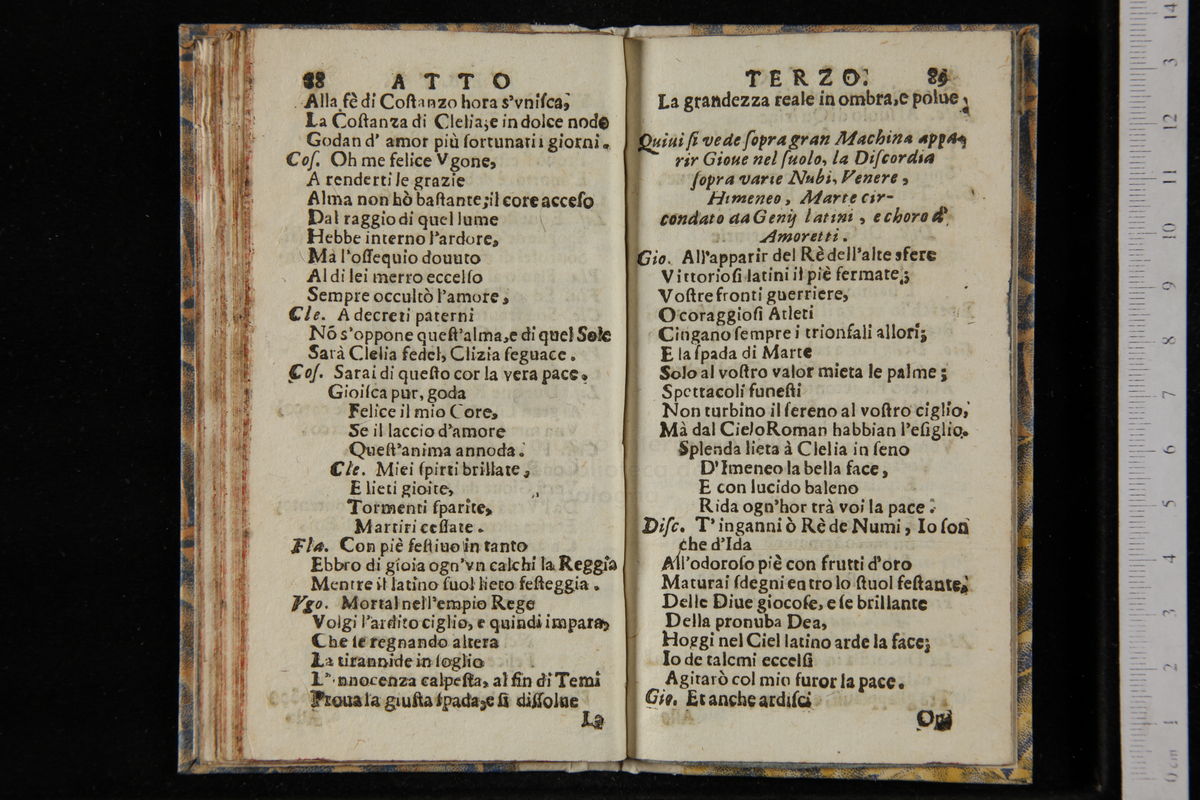 88 ATTO
Alla fè di Coſtanzo hora s'vniſca,
La Coſtanza di Clelia; e in dolce nodo
Godan d' amor più fortunati i giorni.
Coſ. Oh me felice Vgone,
A renderti le grazie
Alma non hò baſtante; il core acceſo
Dal raggio di quel lume
Hebbe interno l'ardore,
Mà l'oſſequio douuto
Al di lei merto eccelſo
Sempre occultò l'amore,
Cle. A decreti paterni
Nō s'oppone queſt'alma, e di quel Sole
Sarà Clelia fedel, Clizia ſeguace.
Coſ. Sarai di queſto cor la vera pace.
Gioiſca pur, goda
Felice il mio Core,
Se il laccio d'amore
Queſt'anima annoda.
Cle. Miei ſpirti brillate,
E lieti gioite,
Tormenti ſparite,
Martiri ceſſate.
Fla. Con piè feſtiuo in tanto
Ebbro di gioia ogn'vn calchi la Reggia
Mentre il latino ſuol lieto feſteggia.
Vgo. Mortal nell'empio Rege
Volgi l'ardito ciglio, e quindi impara,
Che ſe regnando altera
La tirannide in ſoglio
L'innocenza calpeſta, al fin di Temi
Proua la giuſta ſpada, e ſi diſſolue
La
TERZO. 89
La grandezza reale in ombra, e polue.
Quiui ſi vede ſopra gran Machina appa-
rir Gioue nel ſuolo, la Diſcordia
ſopra varie Nubi, Venere,
Himeneo, Marte cir-
condato da Genij latini, e choro d'
Amoretti.
Gio. All'apparir del Rè dell'alte sfere
Vittorioſi latini il piè fermate;
Voſtre fronti guerriere,
O coraggioſi Atleti
Cingano ſempre i trionfali allori;
E la ſpada di Marte
Solo al voſtro valor mieta le palme;
Spettacoli funeſti
Non turbino il ſereno al voſtro ciglio,
Mà dal Cielo Roman habbian l'eſiglio.
Splenda lieta à Clelia in ſeno
D'Imeneo la bella face,
E con lucido baleno
Rida ogn'hor trà voi la pace.
Diſc. T'inganni ò Rè de Numi, Io ſon
che d'Ida
All'odoroſo piè con frutti d'oro
Maturai ſdegni entro lo ſtuol feſtante,
Delle Diue giocoſe, e ſe brillante
Della pronuba Dea,
Hoggi nel Ciel latino arde la face;
Io de talemi eccelſi
Agitarò col mio furor la pace.
Gio. Et anche ardiſci